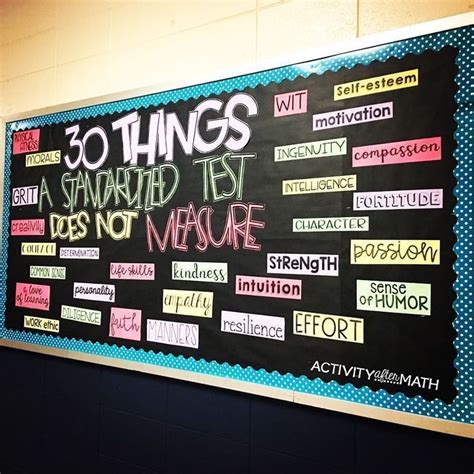 30 THINGS
A STANDARDIZED TEST
DOES NOT MEASURE
PHYSICAL FITNESS
MORALS
GRIT
creativity
COMMON SENSE
a love of learning
WORK ethic
DETERMINATION
personality
DILIGENCE
life skills
faith
kindness
empathy
MANNERS
WIT
Self-esteem
motivation
INGENUITY
compassion
INTELLIGENCE
FORTITUDE
CHARACTER
passion
STRENGTH
intuition
sense of HUMOR
resilience
EFFORT
ACTIVITY after MATH